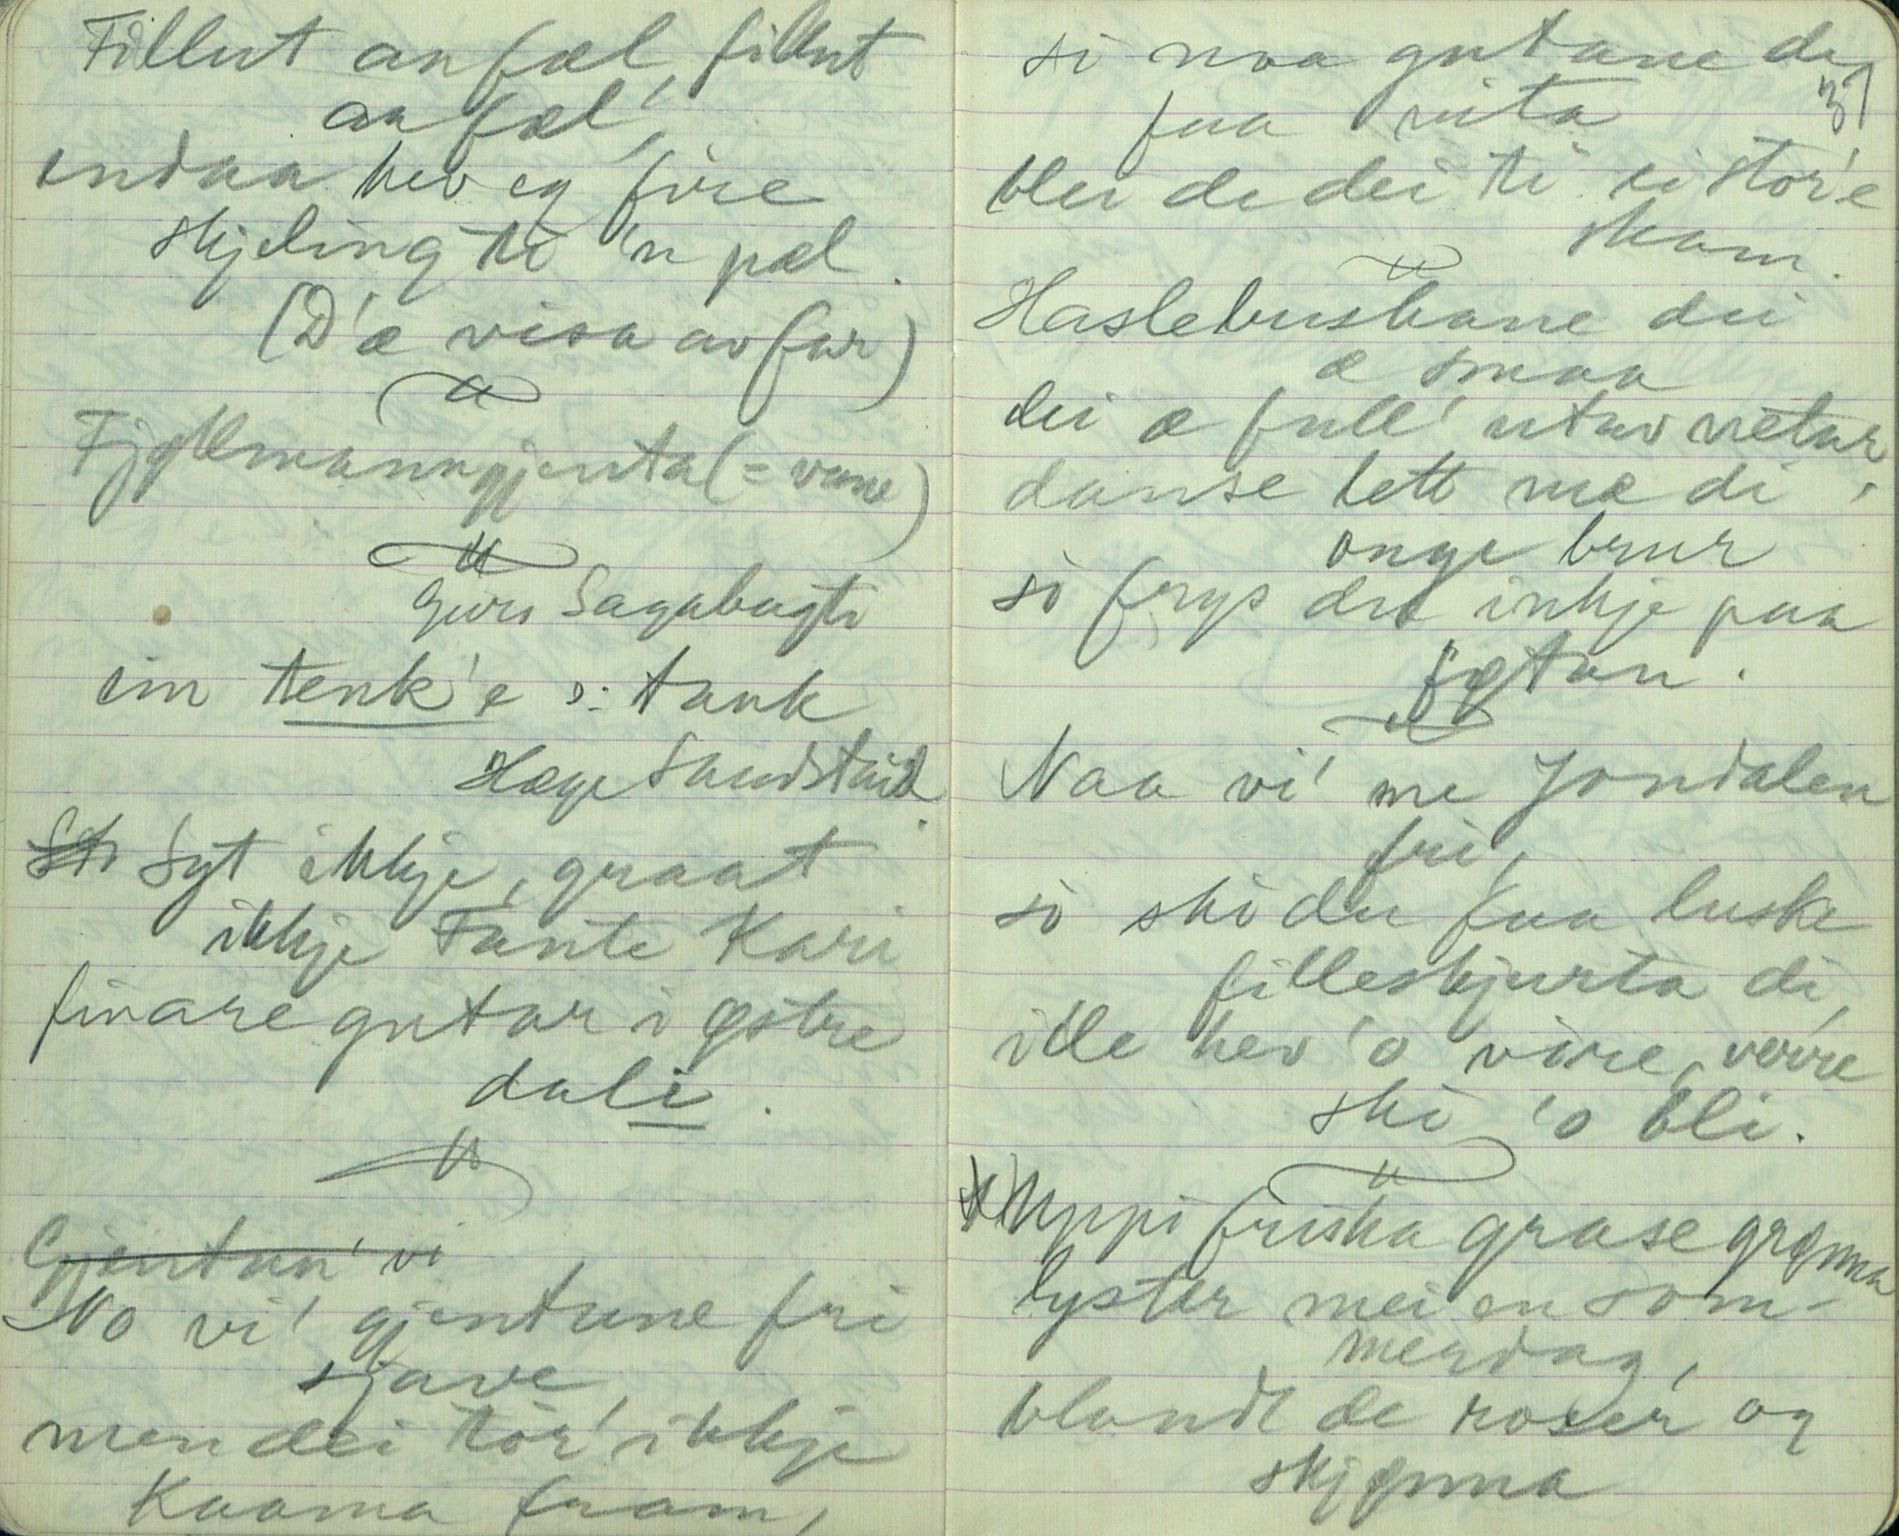 Fillut aa fæl, fillut
aa fæl',
endaa hev eg fire
skjeling ti 'n pæl.
(D'æ visa av far)
Fjøllmanngjenta (= vane)
Guro Sagabugti
ein tenk'e ɔ: tank
Hæge Sandstaid.
Syt ikkje, graat
ikkje Tante Kari
finare gutar i østre
dali.
Gjentun' vi
No vi' gjentune fri
sjave,
men dei tor' ikkje
kaama fram,
si naa gutane de
faa vita
37
blei de dei ti ei stor'e
skam.
Haslebuskane dei
æ smaa
dei æ full' utav netar,
danse lett mæ di
onge brur
so frys du inkje paa
føtan.
Naa vi' me Jondalen
fri,
so ski du faa luske
filleskjurta di,
ille hev 'o vøre, vørre
ski 'o bli.
Uppi friska grase grønna
lyster mei en som-
merdag,
blandt de roser og
skjønna